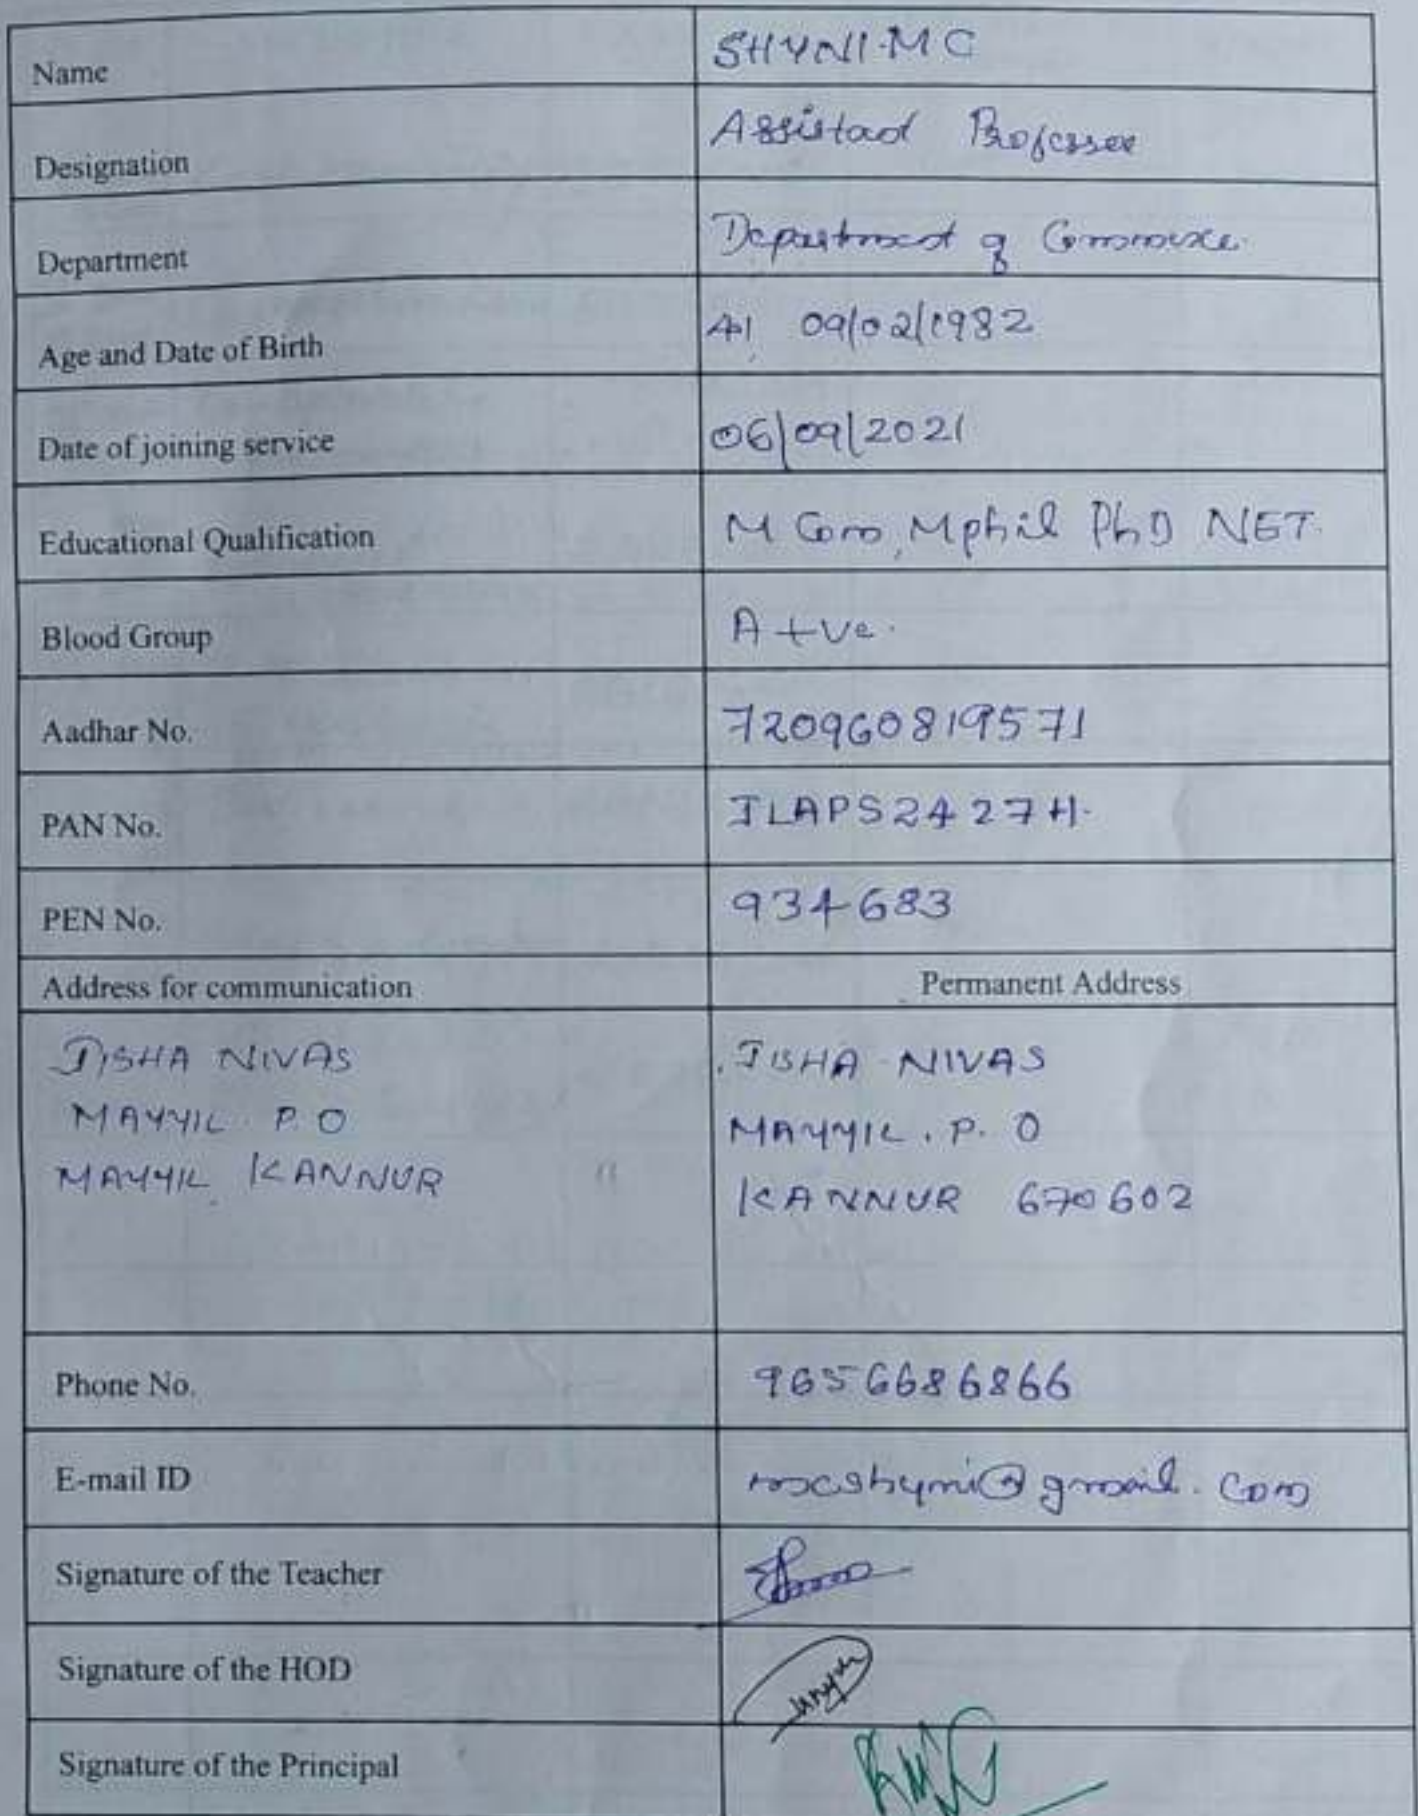 Name SHYNI.M C
Designation Assistant Professor
Department Department of Commerce.
Age and Date of Birth 41 09/02/1982
Date of joining service 06/09/2021
Educational Qualification M Com, Mphil PhD NET.
Blood Group A +ve.
Aadhar No. 720960819571
PAN No. JLAPS2427H.
PEN No. 934683
Address for communication Permanent Address
JISHA NIVAS
MAYYIL P.O
MAYYIL KANNUR
JISHA NIVAS
MAYYIL. P. O
KANNUR 670602
Phone No. 9656686866
E-mail ID mcshyni@gmail.com
Signature of the Teacher
Signature of the HOD
Signature of the Principal